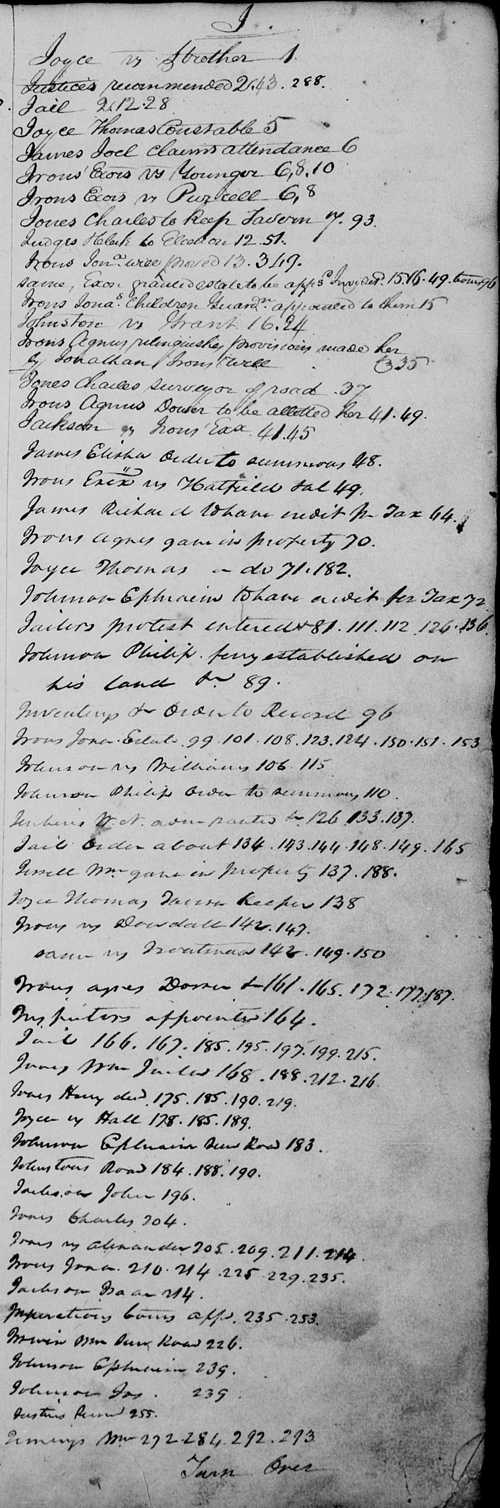 J.
Joyce vs Strother 1.
Justices recommended 2.43. 288.
Jail 2.12.28
Joyce Thomas Constable 5
James Joel claims attendance 6
Irons Exors vs Younger 6,8,10
Irons Exors vs Purcell 6,8
Jones Charles to keep Tavern 7. 93.
Judges & Clerk to Election 12.51.
Irons Jona. will proved 13.
same, Exor granted estate to be apps. 15.16.49.
Irons Jonas. Children Guardn. appointed to them 15
Johnston vs Grant 16.24
Irons Agnus relinquishes provisions made her
by Jonathan Irons will 35
Jones Charles surveyor of road. 37
Irons Agnus Dower to be allotted her 41.49.
Jackson vs Irons Exx 41.45
James Elisha order to summons 48.
Irons Exix vs Hatfield 49.
James Richard to have credit for Tax 64.
Irons Agnes gave in property 70.
Joyce Thomas - do 71.182.
Johnson Ephraim to have credit for Tax 72
Jailors protest entered 81.111.112.126.136
Johnson Philip ferry established on
his land &c 89.
Inventorys &c Order to Record 96
Irons Jona. Estate 99.101.108.123.124.130.151.153
Johnson vs Williams 106.115
Johnson Philip Order to summons 110.
Jenkins 126.133.137.
Jail Order about 134.143.144.148.149.165
Jerrell Wm gave in property 137.188.
Joyce Thomas Tavern Keeper 138
Irons vs Dowdall 142.147.
same vs Troutman 142.149.150
Irons agnes Dower &c 161.165.172.177.187.
Inspectors appointed 164.
Jail 166.167.185.195.197.199.215.
Jones Wm Jailor 168.188.212.216
Jones Henry 175.185.190.219.
Joyce vs Hall 178.185.189.
Johnson Ephraim New Road 183.
Johnstons Road 184.188.190.
Jackson John 196.
Jones Charles 204.
Jones vs Alexander 205.209.211.214
Irons Jona. 210.214.225.229.235.
Jackson Isaac 214.
Inspections app. 235.253.
Irwin Wm Road 226.
Johnson Ephraim 239.
Johnson Jas. 239
Justices 255.
Jennings Wm 272.284.292.293
Turn Over